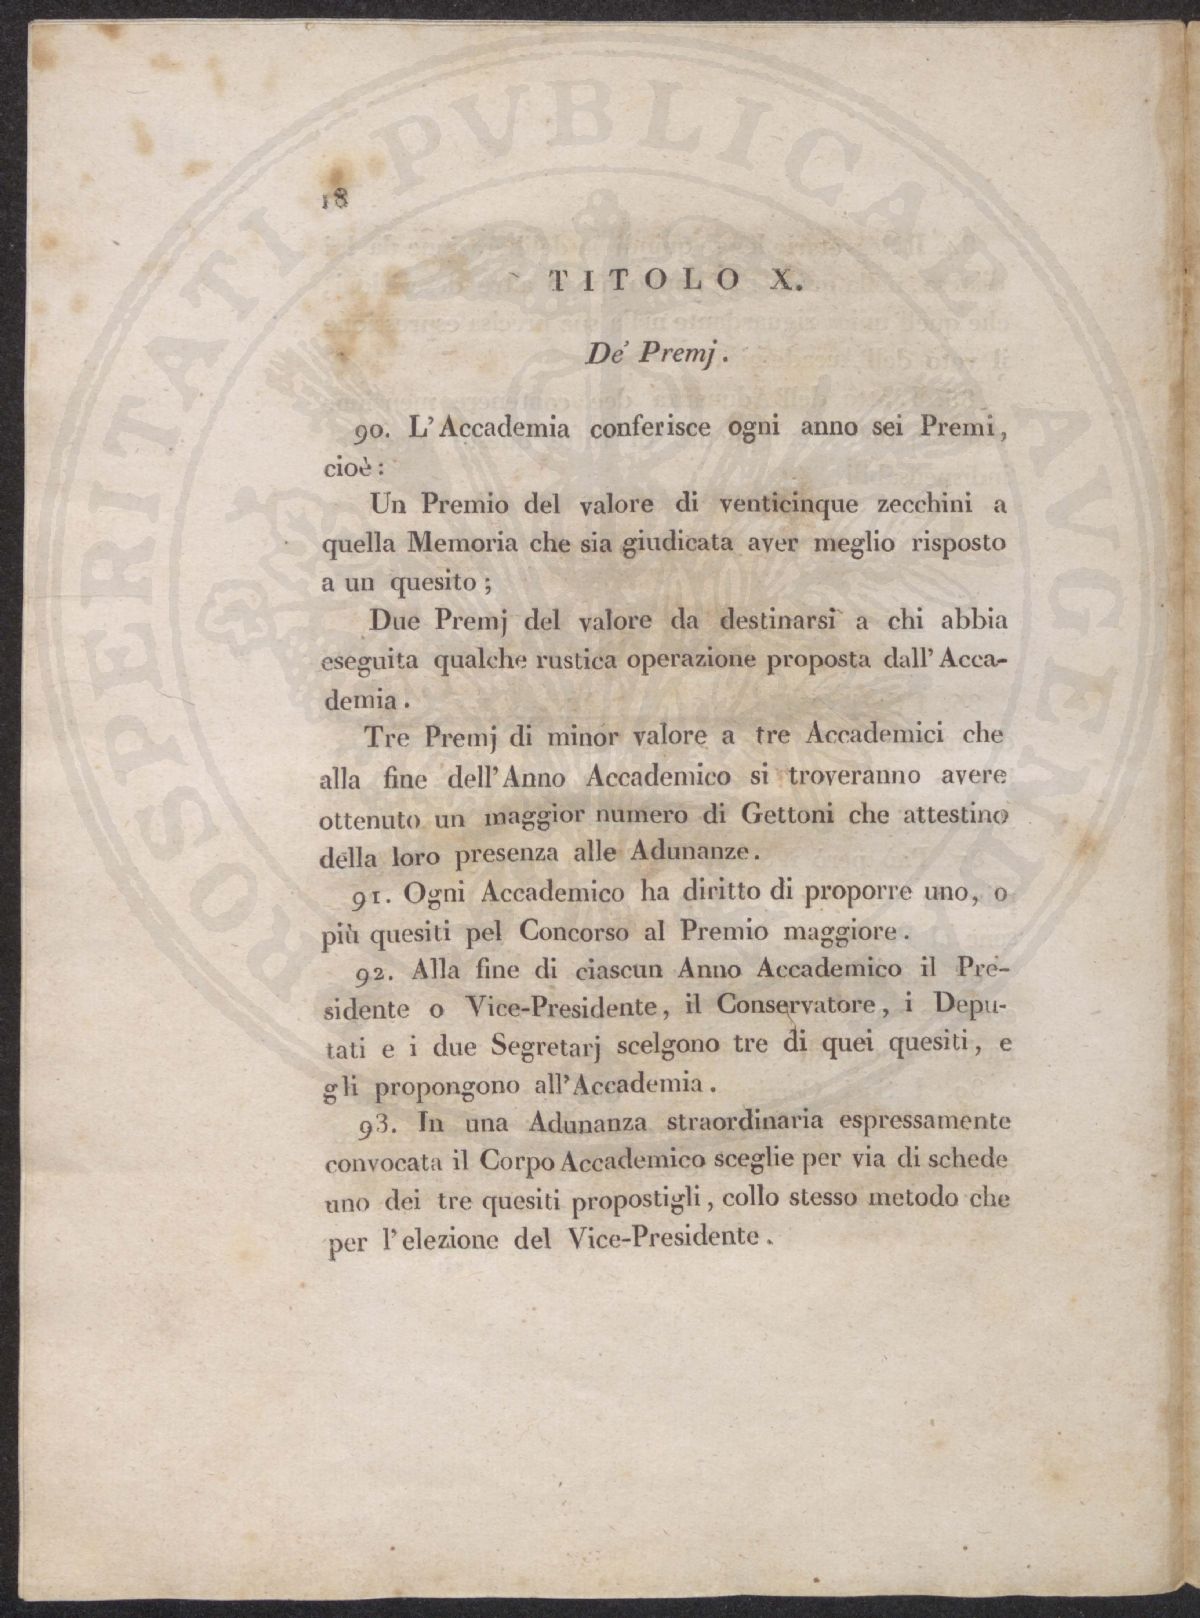 PROSPERITATI PUBLICAE AUGENDAE
18
TITOLO X.
De' Premj.
90. L'Accademia conferisce ogni anno sei Premi,
cioè:
Un Premio del valore di venticinque zecchini a
quella Memoria che sia giudicata aver meglio risposto
a un quesito;
Due Premj del valore da destinarsi a chi abbia
eseguita qualche rustica operazione proposta dall'Acca-
demia.
Tre Premj di minor valore a tre Accademici che
alla fine dell'Anno Accademico si troveranno avere
ottenuto un maggior numero di Gettoni che attestino
della loro presenza alle Adunanze.
91. Ogni Accademico ha diritto di proporre uno, o
più quesiti pel Concorso al Premio maggiore.
92. Alla fine di ciascun Anno Accademico il Pre-
sidente o Vice-Presidente, il Conservatore, i Depu-
tati e i due Segretarj scelgono tre di quei quesiti, e
gli propongono all'Accademia.
93. In una Adunanza straordinaria espressamente
convocata il Corpo Accademico sceglie per via di schede
uno dei tre quesiti propostigli, collo stesso metodo che
per l'elezione del Vice-Presidente.